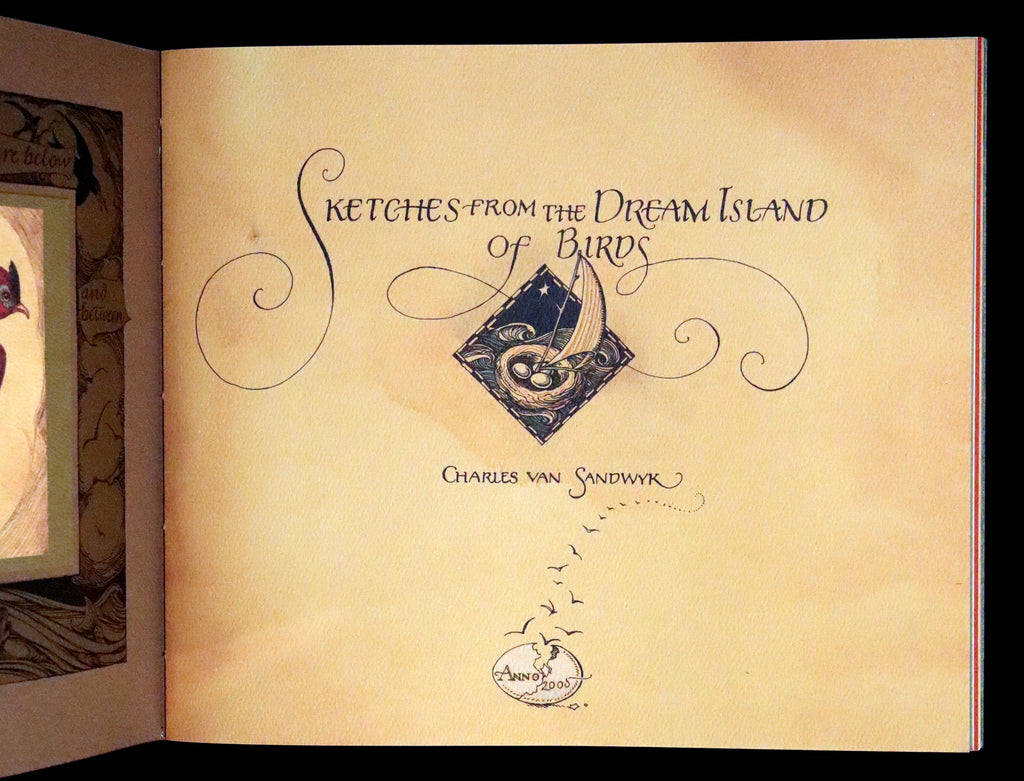 re below
and
between
SKETCHES FROM THE DREAM ISLAND
OF BIRDS
CHARLES VAN SANDWYK
ANNO